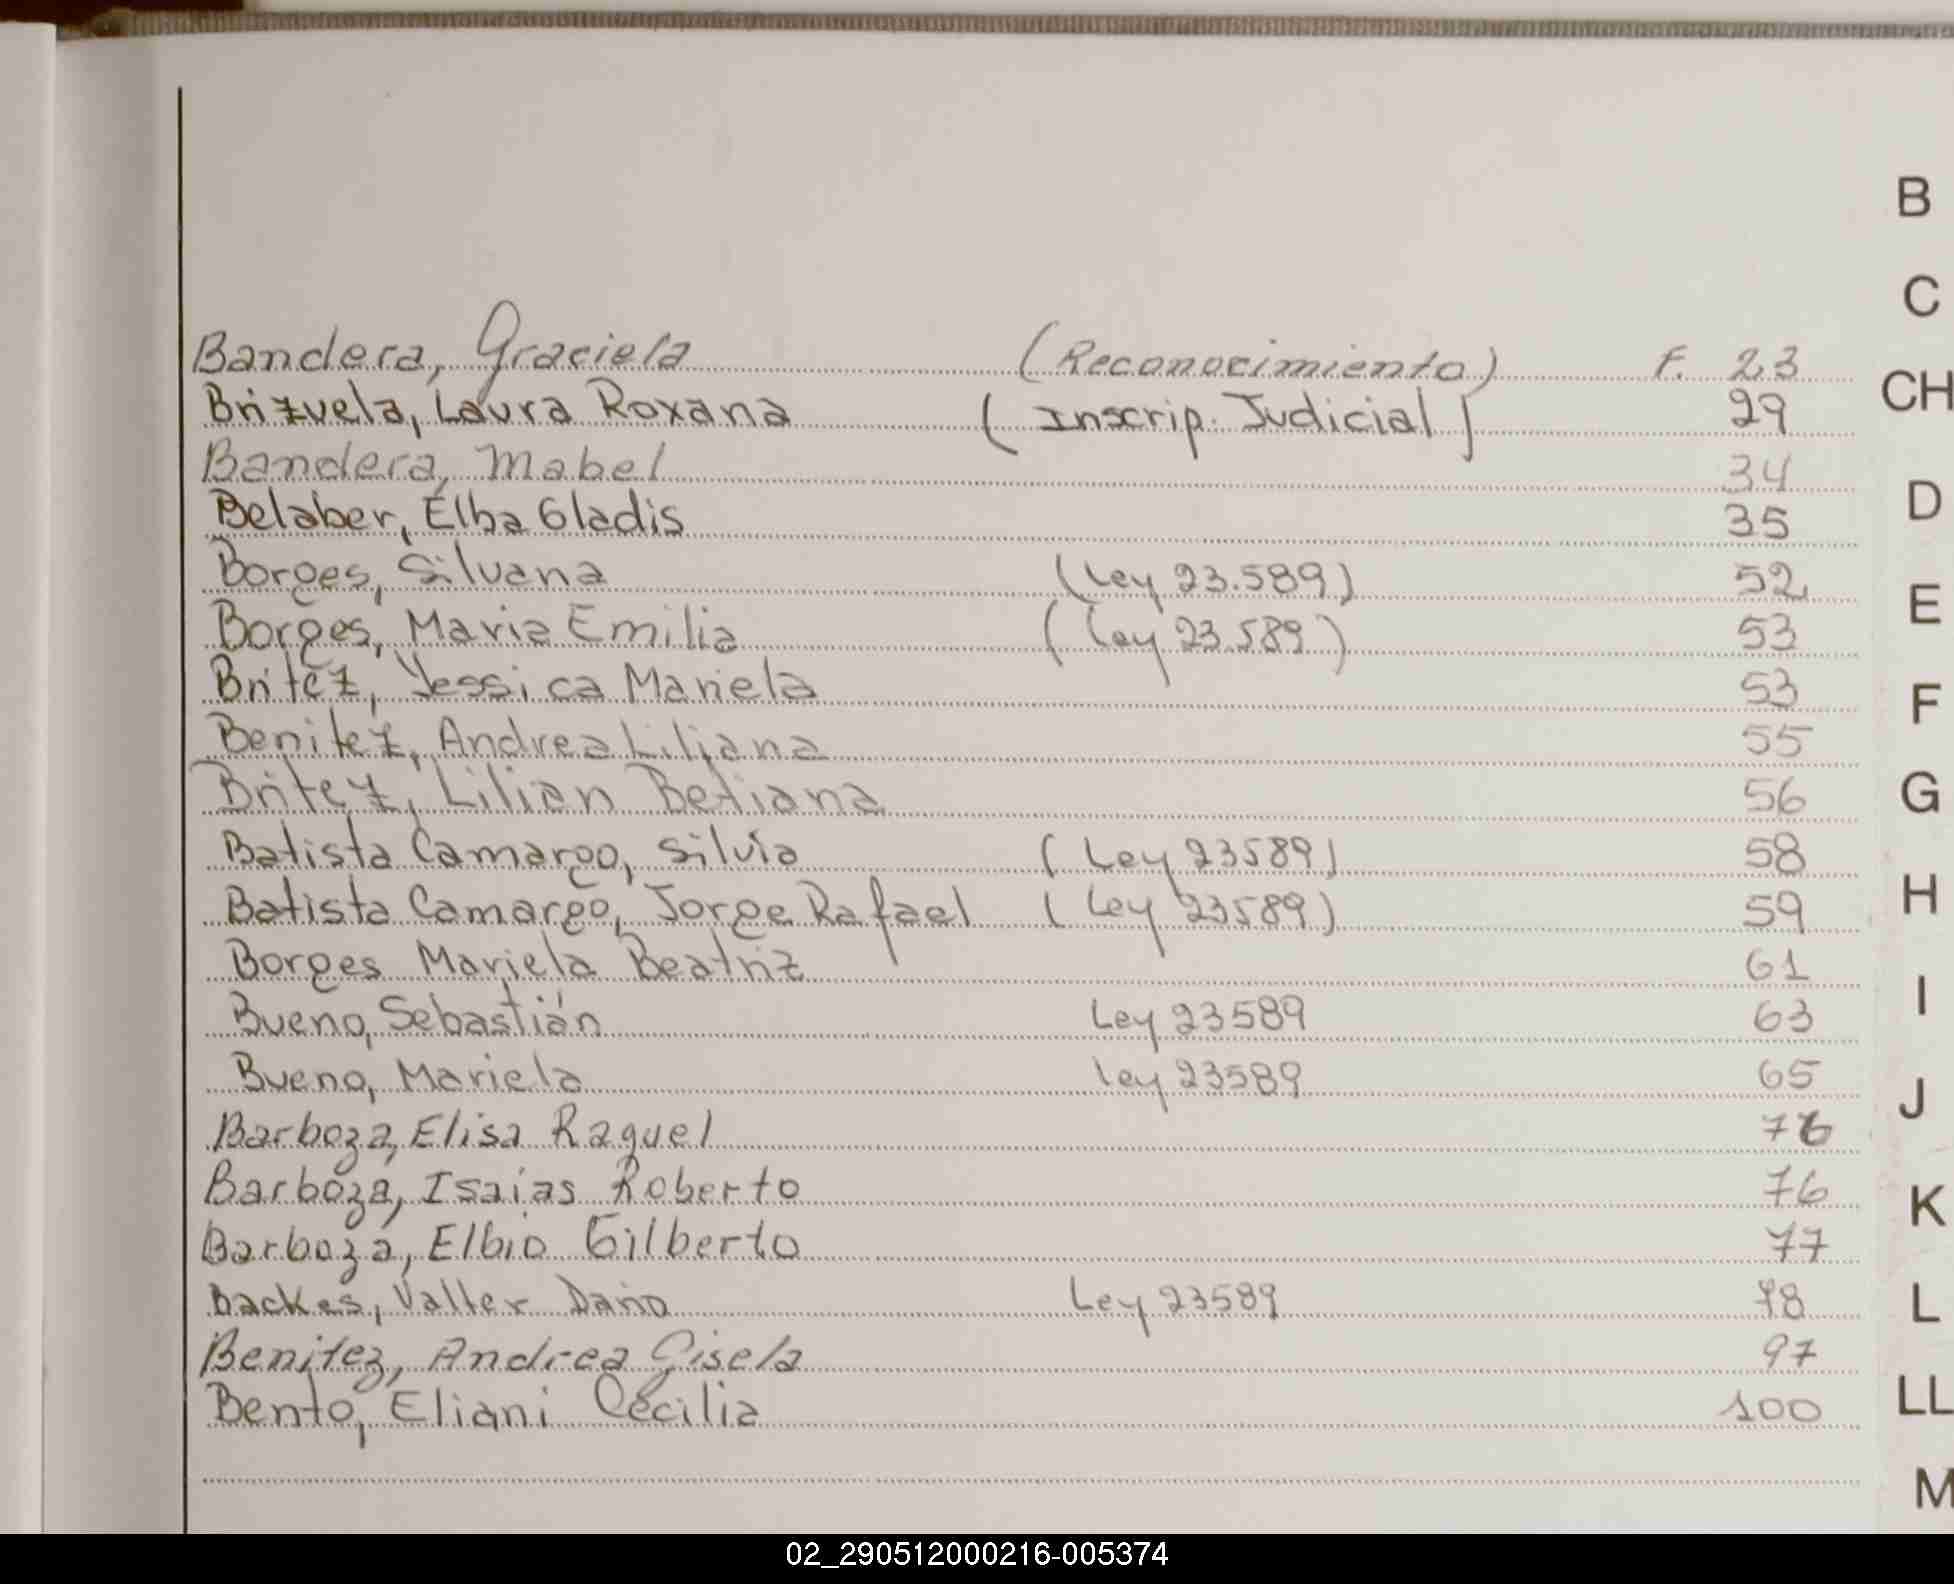 Bandera, Graciela (Reconocimiento) F. 23
Brizuela, Laura Roxana (Inscrip. Judicial) 29
Bandera, Mabel 34
Belaber, Elba Gladis 35
Borges, Silvana (Ley 23.589) 52
Borges, Maria Emilia (Ley 23.589) 53
Britez, Yessica Mariela 53
Benitez, Andrea Liliana 55
Britez, Lilian Betiana 56
Batista Camargo, Silvia (Ley 23589) 58
Batista Camargo, Jorge Rafael (Ley 23589) 59
Borges Mariela Beatriz 61
Bueno, Sebastián Ley 23589 63
Bueno, Mariela Ley 23589 65
Barboza, Elisa Raquel 76
Barboza, Isaias Roberto 76
Barboza, Elbio Gilberto 77
Backes, Valter Dario Ley 23589 78
Benitez, Andrea Gisela 97
Bento, Eliani Cecilia 100
B
C
CH
D
E
F
G
H
I
J
K
L
LL
M
02_290512000216-005374